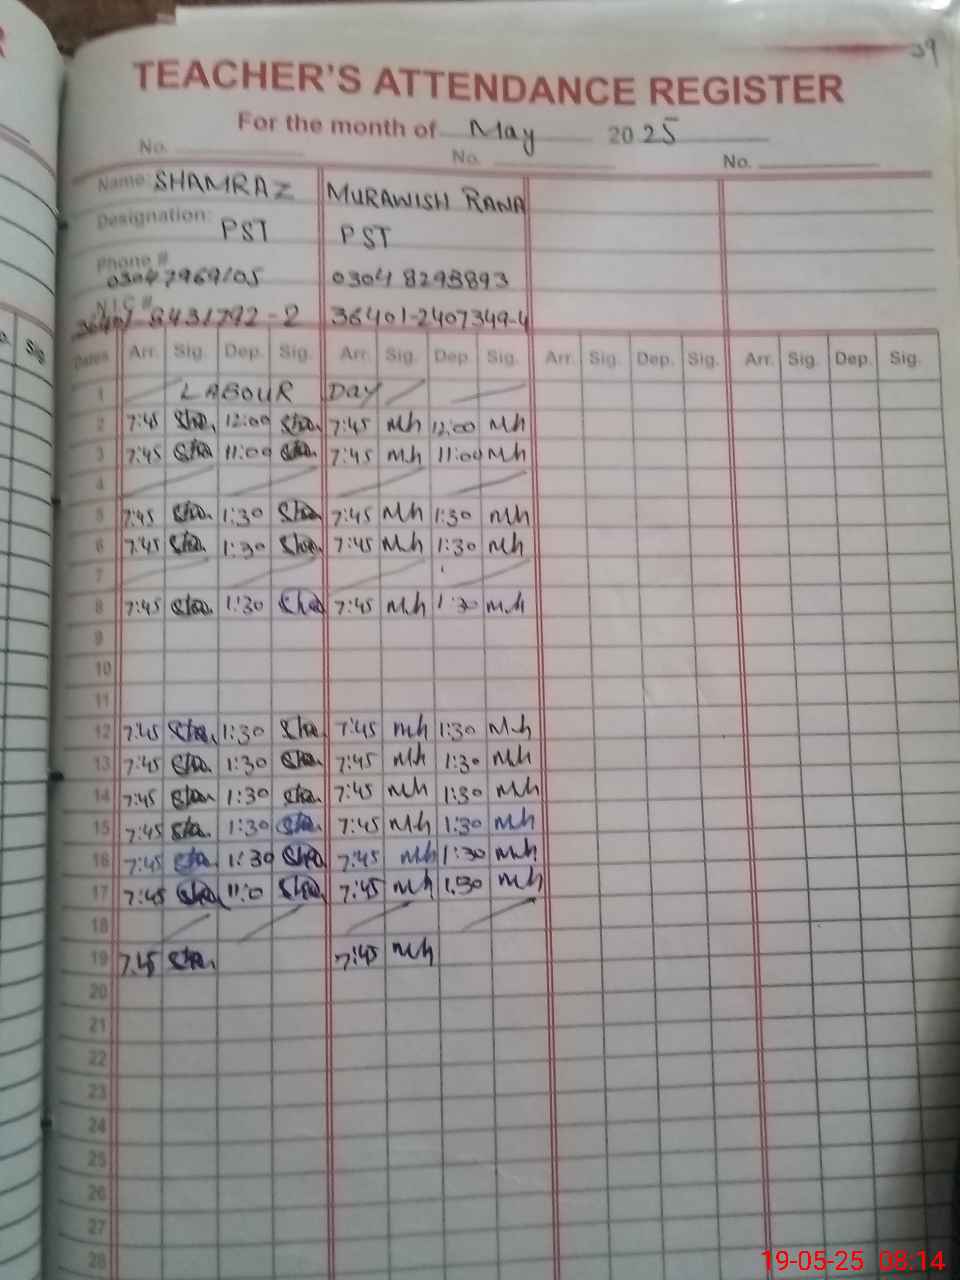 39
TEACHER'S ATTENDANCE REGISTER
For the month of May 2025
No. No. No.
Name: SHAMRAZ MURAWISH RANA
Designation: PST PST
Phone # 03047969105 03048293893
N.I.C # 8431792-2 36401-2407349-4
Dates Arr. Sig. Dep. Sig. Arr. Sig. Dep. Sig. Arr. Sig. Dep. Sig. Arr. Sig. Dep. Sig.
1 LABOUR DAY
2 7:45 Sha. 12:00 Sha. 7:45 Mh 12:00 Mh
3 7:45 Sha 11:00 Sha. 7:45 Mh 11:00 Mh
4
5 7:45 Sha. 1:30 Sha 7:45 Mh 1:30 Mh
6 7:45 Sha. 1:30 Sha 7:45 Mh 1:30 Mh
7
8 7:45 Sha. 1:30 Sha 7:45 Mh 1:30 Mh
9
10
11
12 7:45 Sha. 1:30 Sha. 7:45 Mh 1:30 Mh
13 7:45 Sha. 1:30 Sha. 7:45 Mh 1:30 Mh
14 7:45 Sha 1:30 Sha. 7:45 Mh 1:30 Mh
15 7:45 Sha. 1:30 Sha. 7:45 Mh 1:30 Mh
16 7:45 Sha. 1:30 Sha 7:45 Mh 1:30 Mh
17 7:45 Sha 11:0 Sha 7:45 Mh 1:30 Mh
18
19 7:45 Sha. 7:45 Mh
20
21
22
23
24
25
26
27
28
19-05-25 08:14